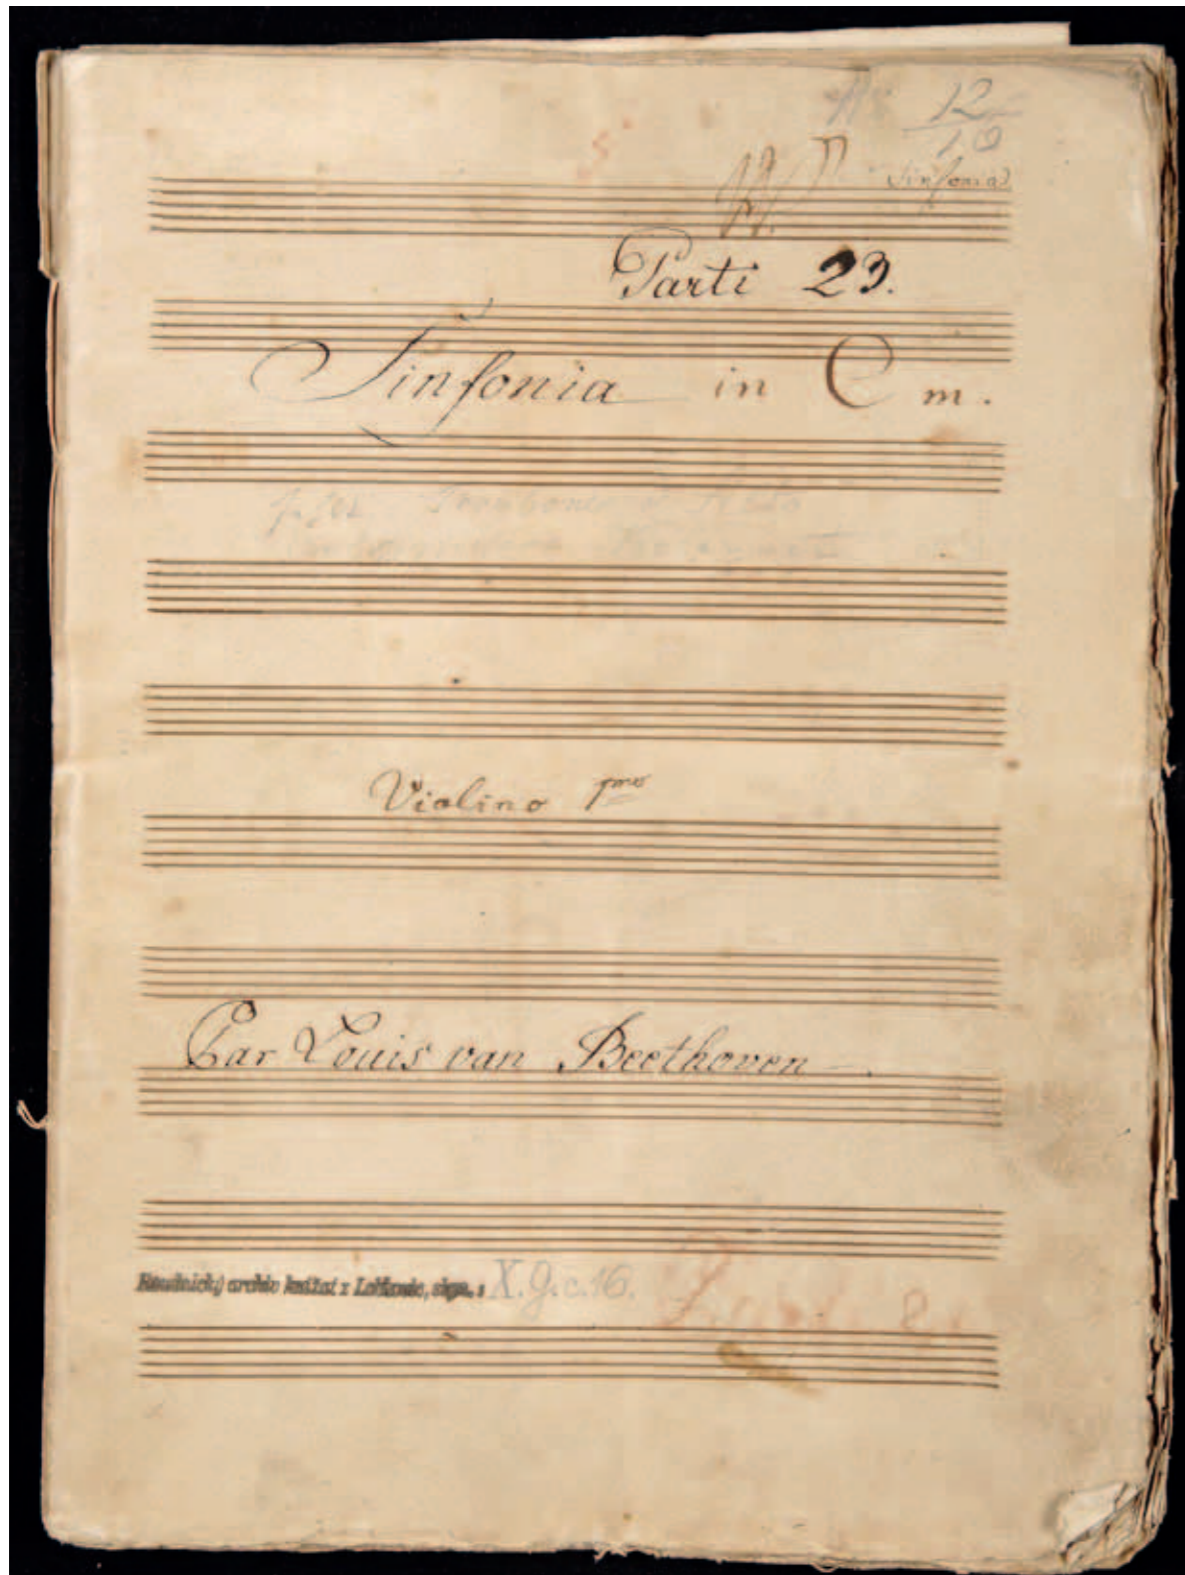 N° 12
10
Sinfonia
Parti 23.
Sinfonia in C m.
Trombone
Violino 1mo
Par Louis van Beethoven
Roudnický archiv knížat z Lobkovic, sign.: X.G.c.16.